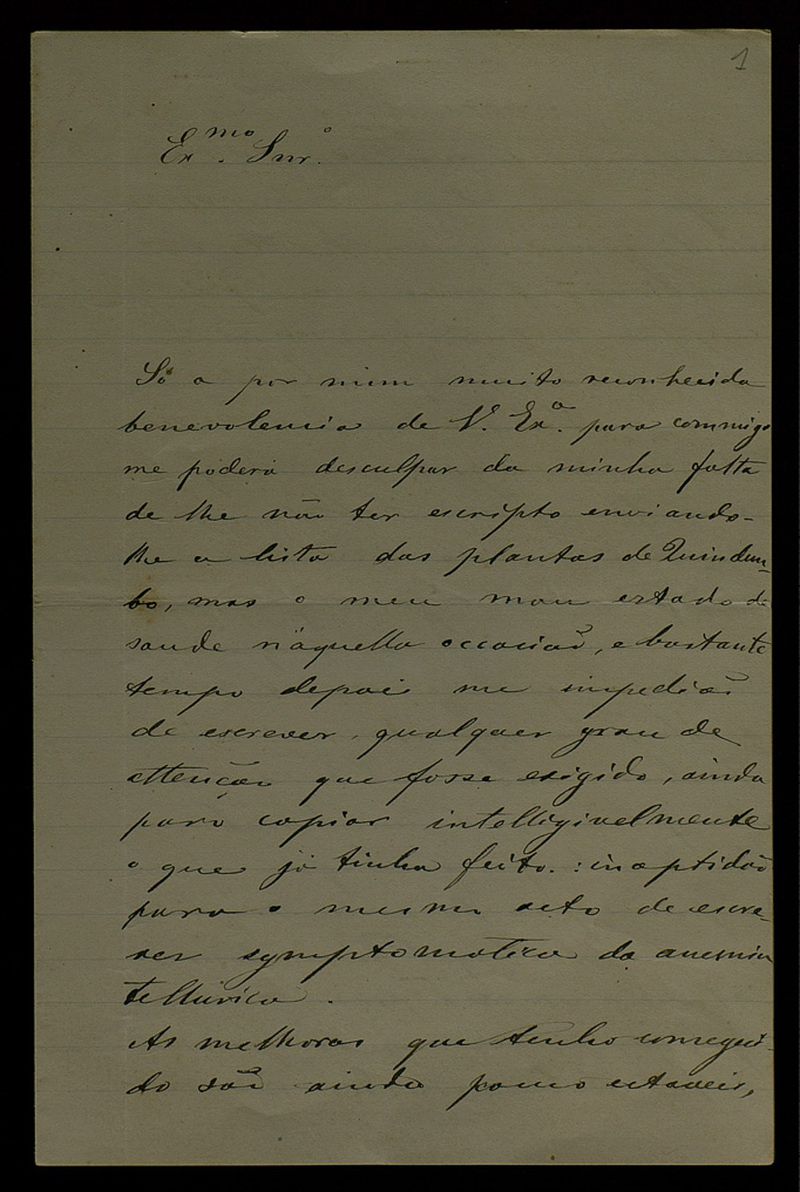 1
Ex.mo Snr.o
Só a por mim muito reconhecida
benevolencia de V. Ex.a para commigo
me poderá desculpar da minha falta
de lhe não ter escripto enviando-
lhe a lista das plantas de Quindum-
bo, mas o meu mau estado de
saude n'aquella occasião, e bastante
tempo depois me impedião
de escrever, qualquer grau de
attenção que fosse exigido, ainda
para copiar intelligivelmente
o que já tinha feito. : inaptidão
para o mesmo acto de escre-
ver symptomatica da anemia
tellurica.
As melhoras que tenho consegui-
do são ainda pouco estaveis,